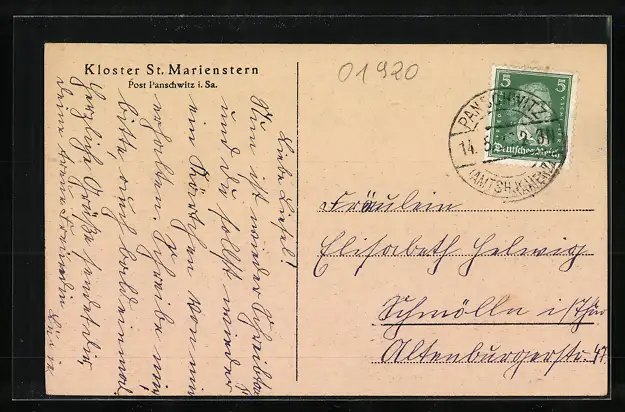 Kloster St. Marienstern
Post Panschwitz i. Sa.
01920
5
5
Deutsches Reich
PANSCHWITZ
14.5.
(AMTSH. KAMENZ)
Liebe Liesel!
Nun ist wieder Schreibtag
und du sollst wieder
ein Kärtchen von mir
erhalten. Schreibe mir
bitte, auch bald einmal.
Herzliche Grüße sendet dir
deine treue Freundin
Fräulein
Elisabeth Helwig
Schmölln i/Thür
Altenburgerstr. 47